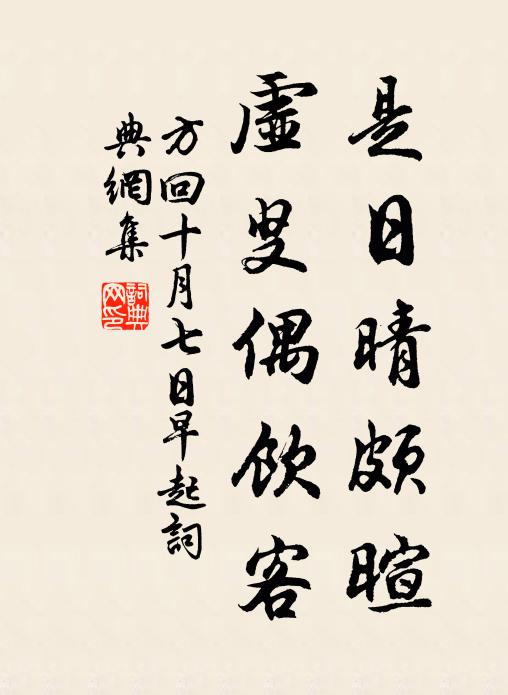 是日晴頗暄
虛叟偶飲客
方回十月七日早起詞
典網集
詞典網印